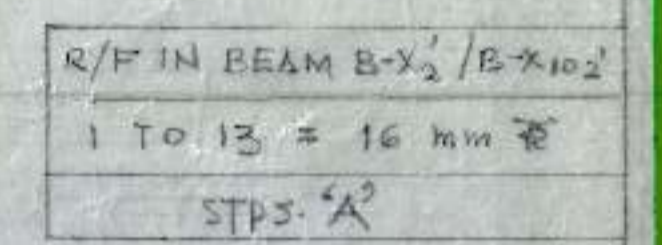 R/F IN BEAM B-X2' /B-X102'
1 TO 13 = 16 mm
STPS. 'A'